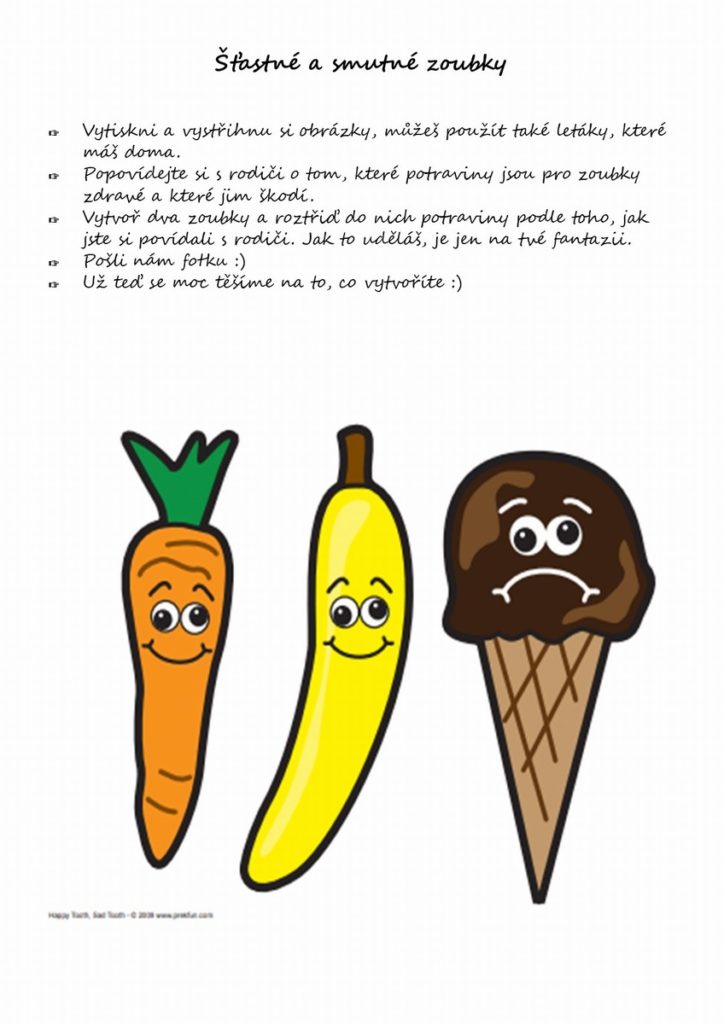 Šťastné a smutné zoubky
Vytiskni a vystřihnu si obrázky, můžeš použít také letáky, které
máš doma.
Popovídejte si s rodiči o tom, které potraviny jsou pro zoubky
zdravé a které jim škodí.
Vytvoř dva zoubky a roztřiď do nich potraviny podle toho, jak
jste si povídali s rodiči. Jak to uděláš, je jen na tvé fantazii.
Pošli nám fotku :)
Už teď se moc těšíme na to, co vytvoříte :)
Happy Tooth, Sad Tooth - © 2009 www.prekfun.com